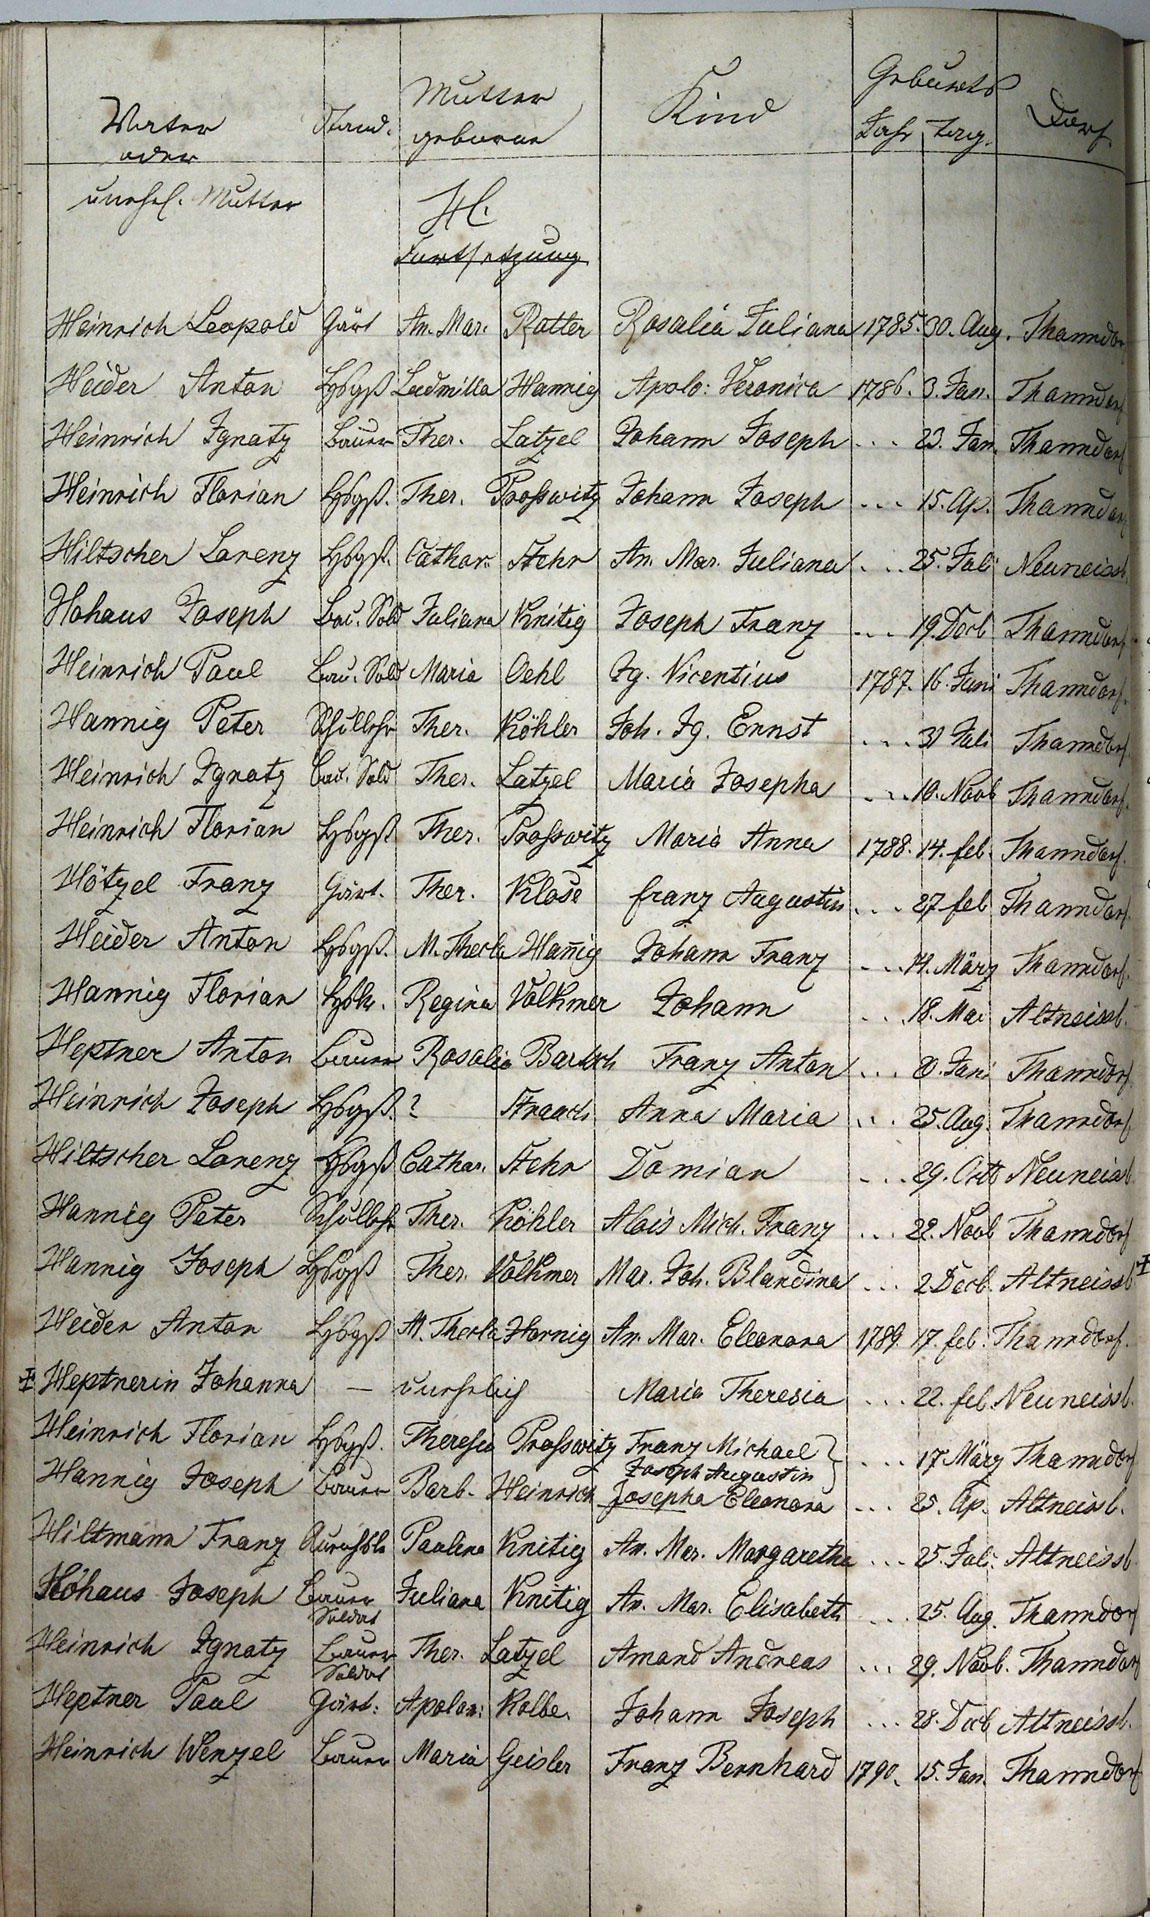 Vater oder unehel. Mutter | Stand. | Mutter geborne | Kind | Geburts Jahr | Tag. | Dorf
H.
Fortsetzung
Heinrich Leopold Gärt An. Mar. Rotter Rosalia Juliana 1785. 30. Aug. Thanndor
Heider Anton Hsbgß Ludmilla Hannig Apolo: Veronica 1786. 3. Jan. Thanndorf
Heinrich Ignatz Bauer Ther. Latzel Johann Joseph ... 23. Jan. Thanndorf
Heinrich Florian Hsbgß. Ther. Prosswitz Johann Joseph ... 15. Ap. Thanndorf
Hiltscher Lorenz Hsbgß. Cathar. Stehr An. Mar. Juliana ... 25. Juli Neuneissb.
Hohaus Joseph Bau. Sold Juliana Knitig Joseph Franz ... 19 Decb Thanndorf
Heinrich Paul Bau. Sold Maria Oehl Ig. Nicentius 1787. 16. Juni Thanndorf.
Hannig Peter Schullehr Ther. Köhler Joh. Ig. Ernst ... 31 Juli Thanndorf.
Heinrich Ignatz Bau. Sold Ther. Latzel Maria Josepha ... 10. Novb Thanndorf.
Heinrich Florian Hsbgß Ther. Prosswitz Maria Anna 1788. 14. feb. Thanndorf.
Hötzel Franz Gärt. Ther. Klose franz Augustin ... 27 feb Thanndorf.
Heider Anton Hsbgß. M. Thecla Han̄ig Johann Franz ... 14. März Thanndorf.
Hannig Florian Regina Volkmer Johann ... 18. Mai Altneissb.
Heptner Anton Bauer Rosalia Bartsch Franz Anton ... Juni Thanndorf
Heinrich Joseph Hsbgß. ? Strauch Anna Maria ... 25. Aug. Thanndorf
Hiltscher Lorenz Hsbgß Cathar. Stehr Damian ... 29. Octb Neuneissb
Hannig Peter Schullehr Ther. Köhler Alois Mich. Franz ... 22. Novb Thanndorf
Hannig Joseph Hsbgß Ther. Volkmer Mar. Joh. Blandina ... 2 Decb. Altneissb
Heider Anton Hsbgß M. Thecla Hornig An. Mar. Eleonora 1789. 17. feb. Thanndorf.
Heptnerin Johanna — unehelich Maria Theresia ... 22. feb Neuneissb.
Heinrich Florian Hsbgß. Theresia Prosswitz Franz Michael } ... 17 März Thanndorf
Joseph Augustin
Hannig Joseph Bauer Barb. Heinrich Josepha Eleonora ... 25. Ap. Altneissb.
Hiltmann Franz Paulina Knitig An. Mar. Margaretha ... 25. Juli Altneissb
Höhaus Joseph Bauer Soldat Juliana Knitig An. Mar. Elisabeth ... 25. Aug. Thanndorf
Heinrich Ignatz Bauer Soldat Ther. Latzel Amand Andreas ... 29. Novb. Thanndorf
Heptner Paul Gärt: Apolon: Kolbe. Johann Joseph ... 28. Decb Altneissb.
Heinrich Wenzel Bauer Maria Geisler Franz Bernhard 1790. 15. Jan. Thanndorf